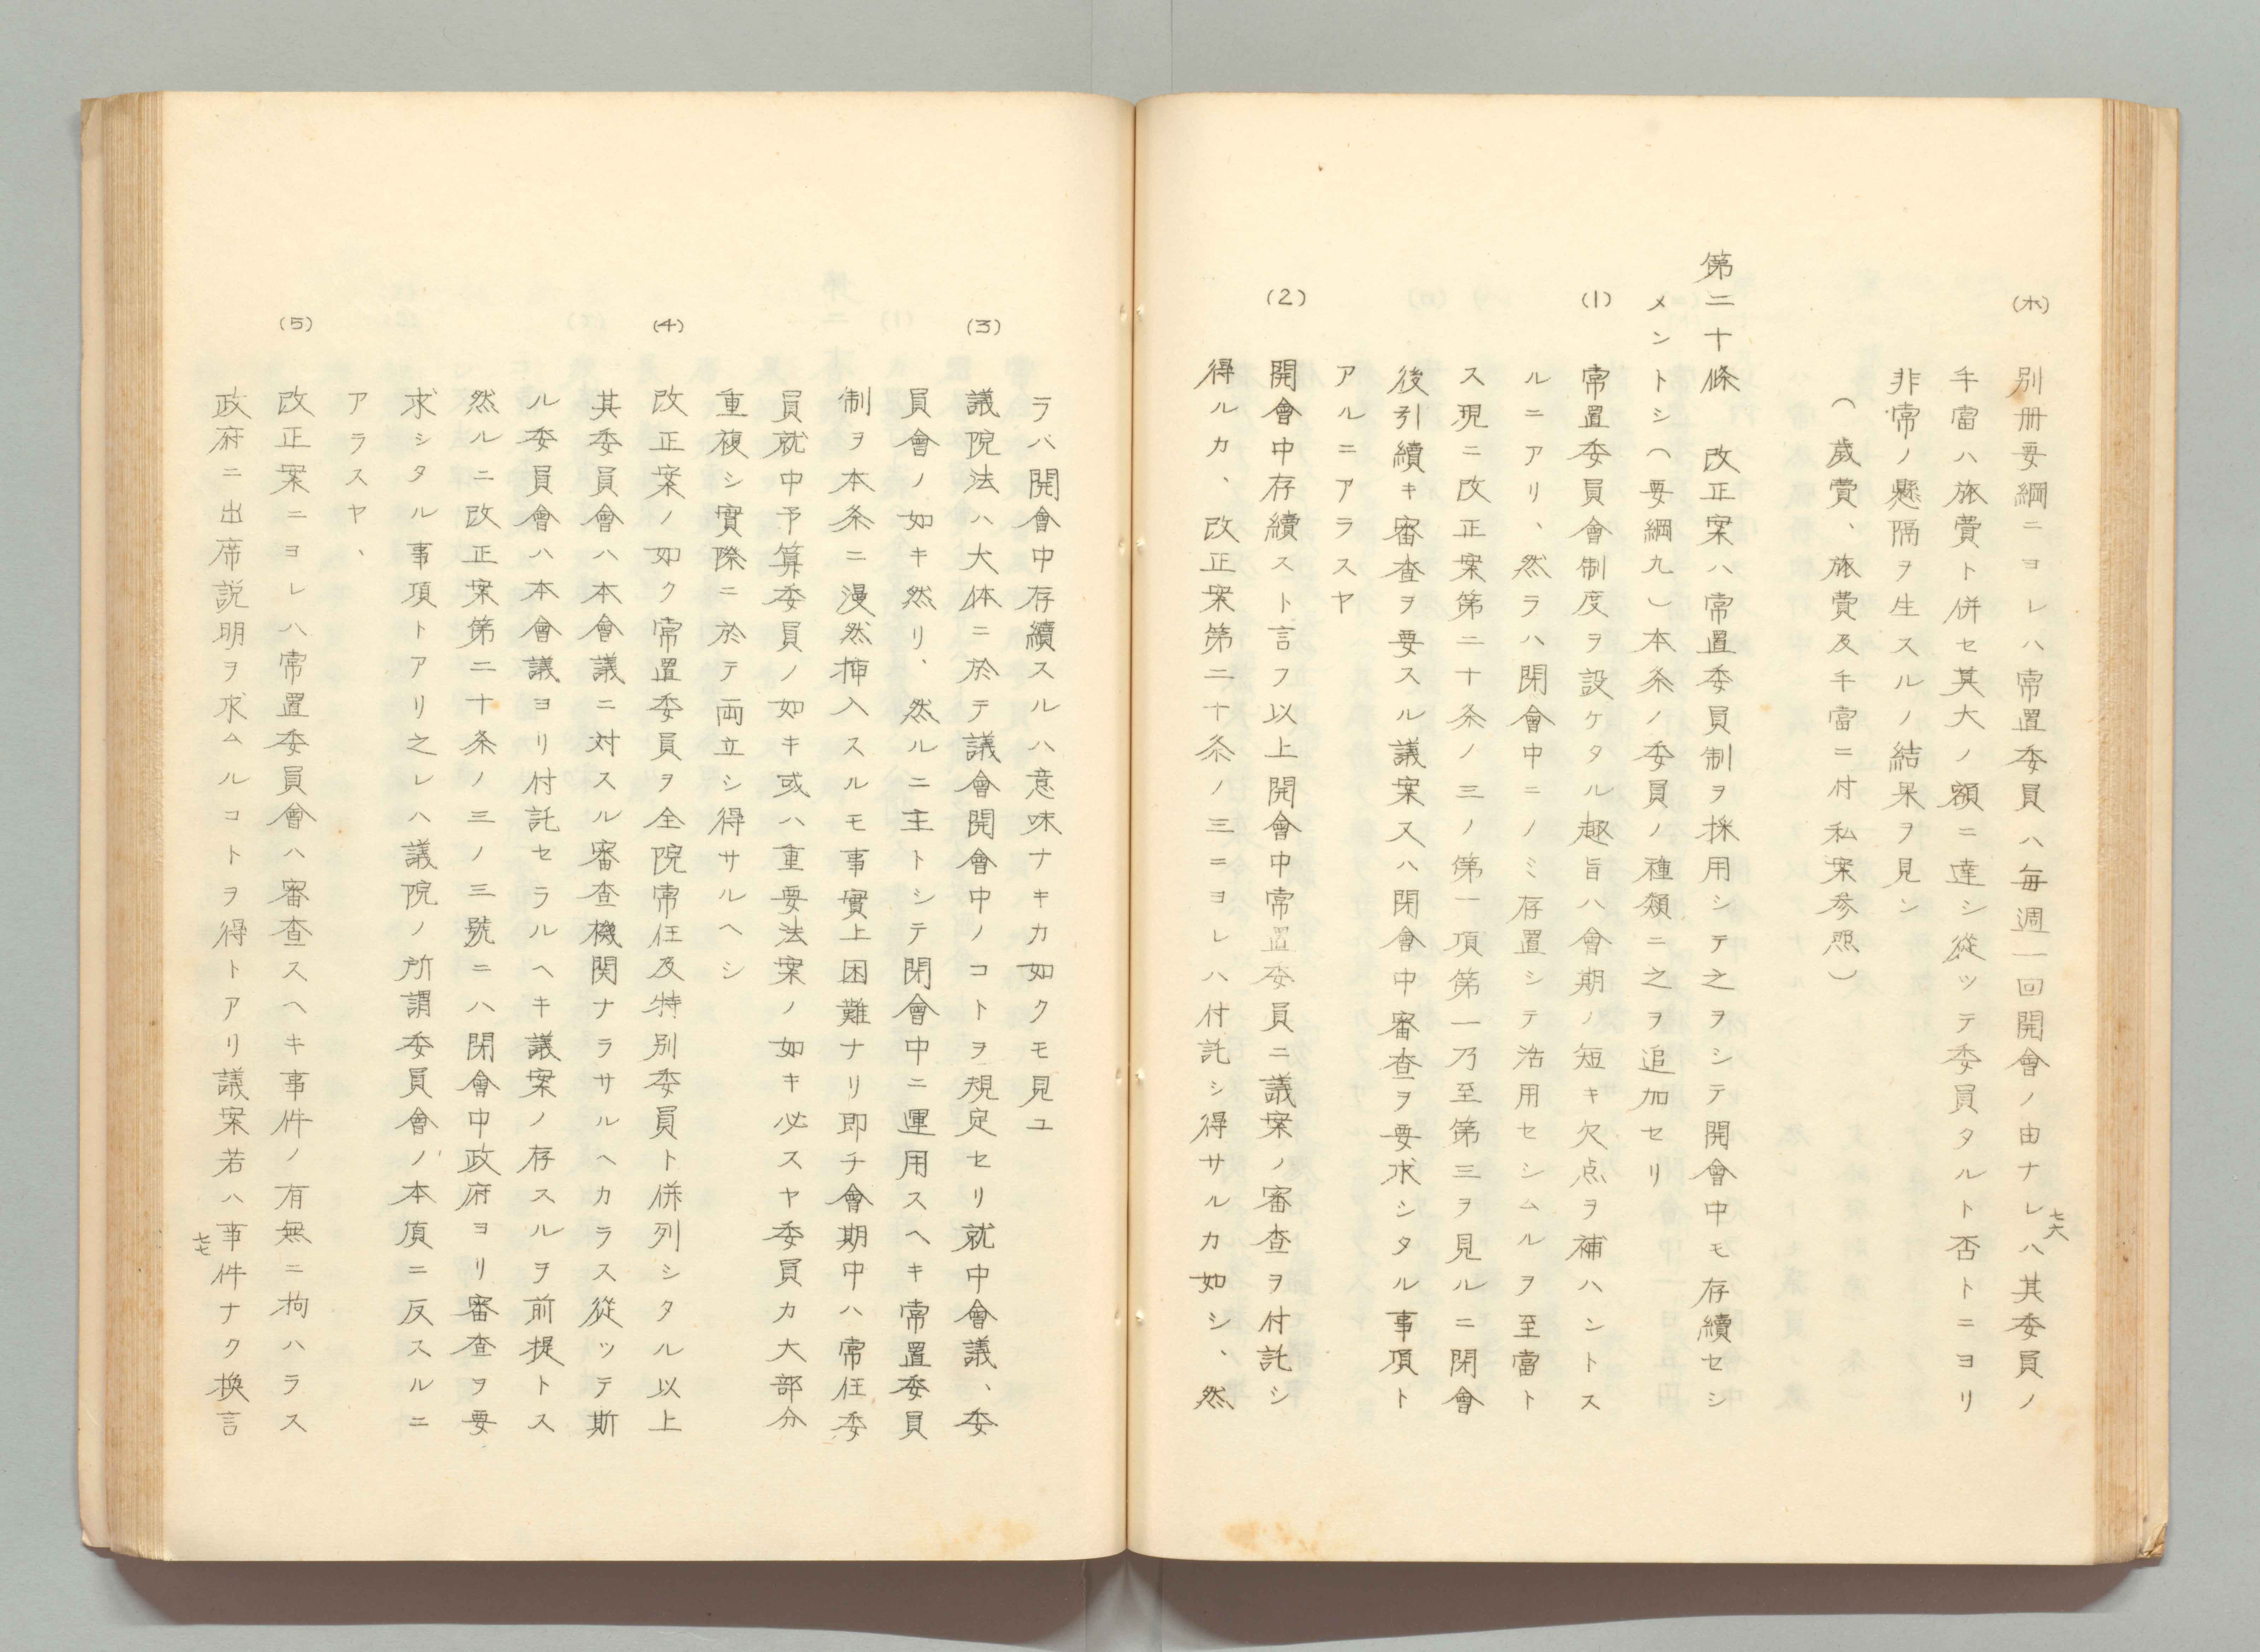 (ホ) 別册要綱ニヨレハ常置委員ハ毎週一回開會ノ由ナレハ其委員ノ
手當ハ旅費ト併セ其大ノ額ニ達シ從ツテ委員タルト否トニヨリ
非常ノ懸隔ヲ生スルノ結果ヲ見ン
(歲費、旅費及手當ニ付私案參照)
第二十條 改正案ハ常置委員制ヲ採用シテ之ヲシテ開會中モ存續セシ
メントシ(要綱九)本条ノ委員ノ種類ニ之ヲ追加セリ
(1) 常置委員會制度ヲ設ケタル趣旨ハ會期ノ短キ欠点ヲ補ハントス
ルニアリ、然ラハ閉會中ニノミ存置シテ活用セシムルヲ至當ト
ス現ニ改正案第二十条ノ三ノ第一項第一乃至第三ヲ見ルニ閉會
後引續キ審査ヲ要スル議案又ハ閉會中審査ヲ要求シタル事項ト
アルニアラスヤ
(2) 開會中存續スト言フ以上開會中常置委員ニ議案ノ審査ヲ付託シ
得ルカ、改正案第二十条ノ三ニヨレハ付託シ得サルカ如シ、然
七六
ラバ開會中存續スルハ意味ナキカ如クモ見ユ
(3) 議院法ハ大体ニ於テ議會開會中ノコトヲ規定セリ就中會議、委
員會ノ如キ然リ、然ルニ主トシテ閉會中ニ運用スヘキ常置委員
制ヲ本条ニ漫然揷入スルモ事實上困難ナリ即チ會期中ハ常任委
員就中予算委員ノ如キ或ハ重要法案ノ如キ必スヤ委員カ大部分
重複シ實際ニ於テ両立シ得サルヘシ
(4) 改正案ノ如ク常置委員ヲ全院常任及特別委員ト併列シタル以上
其委員會ハ本會議ニ対スル審査機関ナラサルヘカラス從ツテ斯
ル委員會ハ本會議ヨリ付託セラルヘキ議案ノ存スルヲ前提トス
然ルニ改正案第二十条ノ三ノ三號ニハ閉會中政府ヨリ審査ヲ要
求シタル事項トアリ之レハ議院ノ所謂委員會ノ本質ニ反スルニ
アラスヤ、
(5) 改正案ニヨレハ常置委員會ハ審査スヘキ事件ノ有無ニ拘ハラス
政府ニ出席説明ヲ求ムルコトヲ得トアリ議案若ハ事件ナク換言
七七